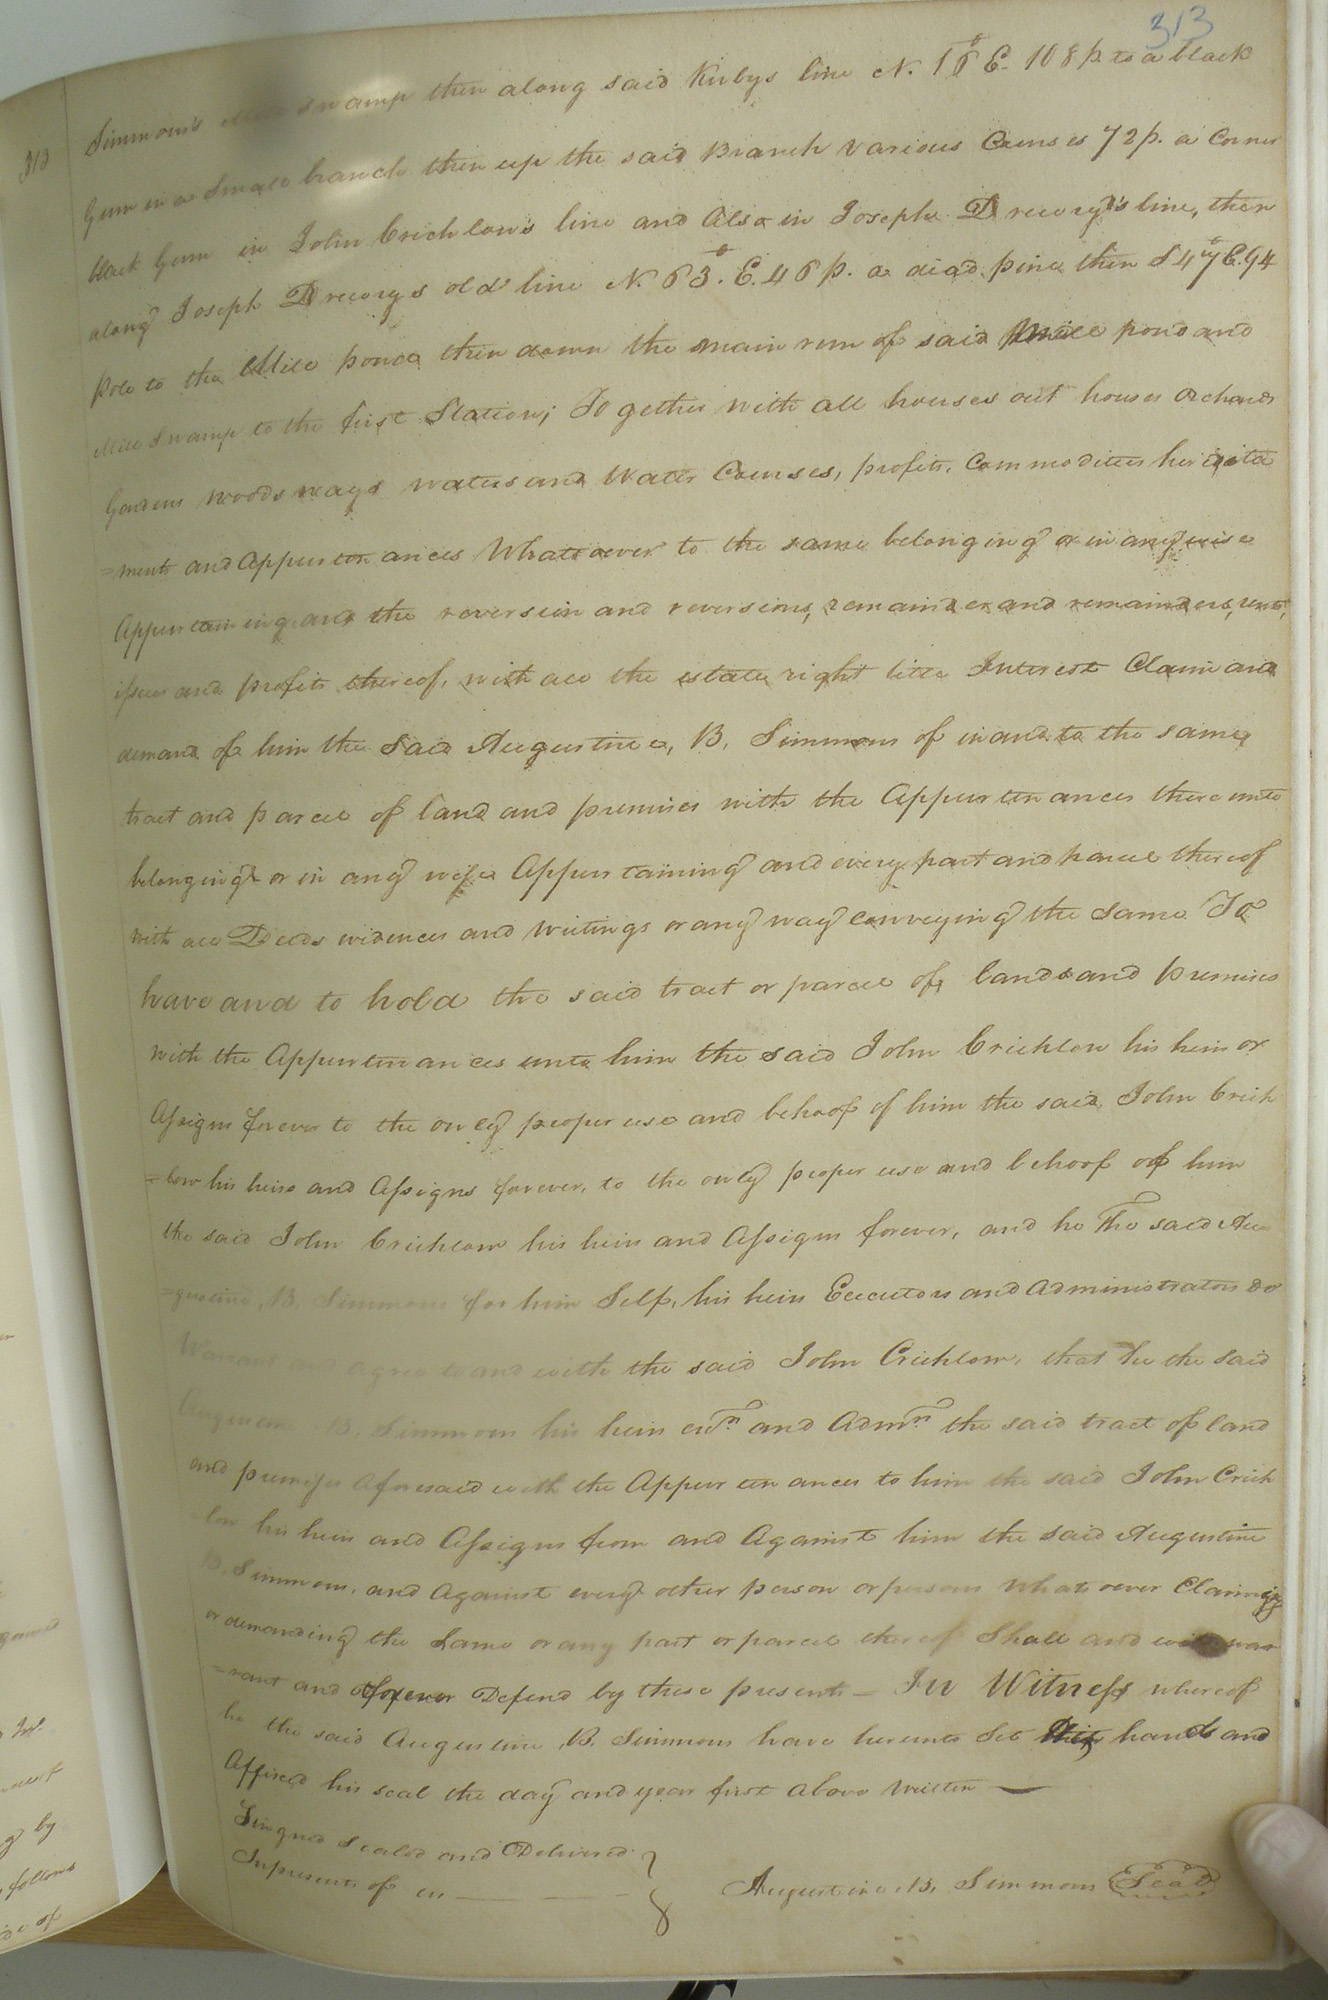 313
313
Simmons's Mill Swamp then along said Kirbys line N. 16° E. 108 p. to a black
Gum in a Small branch then up the said Branch various Courses 72 p. a Corner
black Gum in John Crichlow's line and Also in Joseph Drewry's line, then
along Joseph Drewrys old line N. 63°. E. 46 p. a dead pine then S 47° E. 94
Pole to the Mill pond then down the main run of said Mill pond and
Mill Swamp to the first Station; Together with all houses out houses Orchards
Gardens woods ways waters and Water Courses, profits, Commodities heridita
=ments and Appurtenances Whatsoever to the same belonging or in any wise
Appurtaining and the reversion and reversions, remainder and remainders, rents,
issues and profits thereof, with all the estate right title Interest Claim and
demand of him the Said Augustine, B, Simmons of in and to the same
tract and parcel of land and premises with the Appurtenances there unto
belonging or in any wise Appurtaining and every part and parcel thereof
with all Deeds evidences and writings or any way conveying the Same To
have and to hold the said tract or parcel of land and premises
with the Appurtenances unto him the said John Crichlow his heirs or
Assigns forever to the only proper use and behoof of him the said John Crich
=low his heirs and Assigns forever, to the only proper use and behoof of him
the said John Crichlow his heirs and Assigns forever, and he The said Au
=gustine, B, Simmons for him Self, his heirs Executors and Administrators do
Warrant and agree to and with the said John Crichlow, that he the said
Augustine B. Simmons his heirs exrs. and Admrs. the said tract of land
and premises aforesaid with the Appurtenances to him the said John Crich
=low his heirs and Assigns from and Against him the said Augustine
B. Simmons, and Against every other person or persons Whatsoever Claiming
or demanding the Same or any part or parcel thereof Shall and will war
=rant and forever Defend by these presents — In Witness whereof
he the said Augustine B. Simmons have hereunto Set his hands and
Affixed his seal the day and year first above written —
Singned Sealed and Delivered
Inpresents of us
Augustine, B, Simmons Seal
gained
by
follows
of